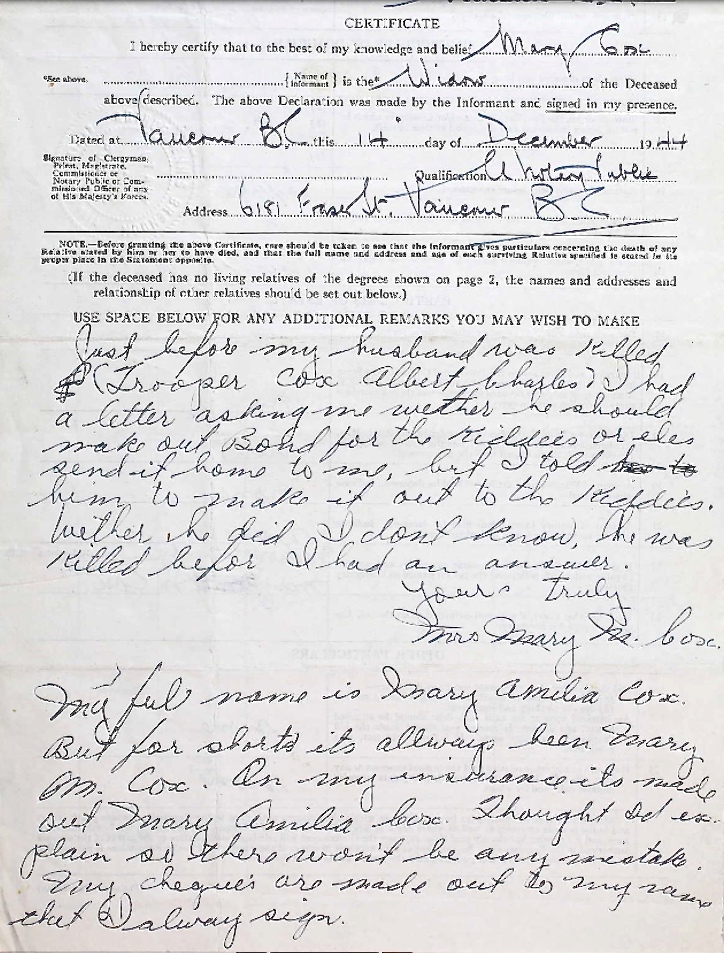 CERTIFICATE
I hereby certify that to the best of my knowledge and belief Mary Cox
*See above. {Name of informant} is the* Widow of the Deceased
above described. The above Declaration was made by the Informant and signed in my presence.
Dated at Vancouver B.C. this 14" day of December 1944
Signature of Clergyman, Priest, Magistrate, Commissioner or Notary Public or Commissioned Officer of any of His Majesty's Forces. Qualification A Notary Public
Address 6181 Fraser St. Vancouver B.C.
NOTE.—Before granting the above Certificate, care should be taken to see that the informant gives particulars concerning the death of any
Relative stated by him or her to have died, and that the full name and address and age of each surviving Relative specified is stated in its
proper place in the Statement opposite.
(If the deceased has no living relatives of the degrees shown on page 2, the names and addresses and
relationship of other relatives should be set out below.)
USE SPACE BELOW FOR ANY ADDITIONAL REMARKS YOU MAY WISH TO MAKE
Just before my husband was Killed
(Trooper Cox Albert Charles) I had
a letter asking me wether he should
make out Bond for the Kiddies or eles
send it home to me, but I told
him to make it out to the Kiddies.
Wether he did I don't know, he was
Killed befor I had an answer.
Yours Truly
Mrs Mary M. Cox.
My full name is Mary Amilia Cox.
But for shorts its allways been Mary
M. Cox. On my insurance its made
out Mary Amilia Cox. Thought I'd ex-
plain so there won't be any mistake.
My cheques are made out to my name
that I alway sign.